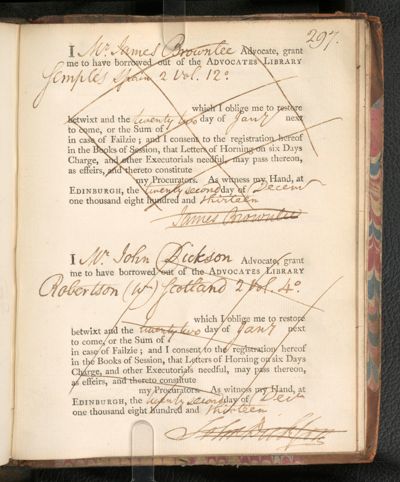 297.
I Mr. James Brownlee Advocate, grant
me to have borrowed out of the ADVOCATES LIBRARY
Semples Spain 2 Vol. 12o
which I oblige me to restore
betwixt and the twenty two day of Jany next
to come, or the Sum of
in case of Failzie; and I consent to the registration hereof
in the Books of Session, that Letters of Horning on six Days
Charge, and other Executorials needful, may pass thereon,
as effeirs, and thereto constitute
my Procurators. As witness my Hand, at
EDINBURGH, the twenty second day of Decem
one thousand eight hundred and thirteen
James Brownlee
I Mr. John Dickson Advocate, grant
me to have borrowed out of the ADVOCATES LIBRARY
Robertson (Wm) Scotland 2 Vol. 4o.
which I oblige me to restore
betwixt and the twenty two day of Jany next
to come, or the Sum of
in case of Failzie; and I consent to the registration hereof
in the Books of Session, that Letters of Horning on six Days
Charge, and other Executorials needful, may pass thereon,
as effeirs, and thereto constitute
my Procurators. As witness my Hand, at
EDINBURGH, the twenty second day of Decr
one thousand eight hundred and thirteen
John Dickson